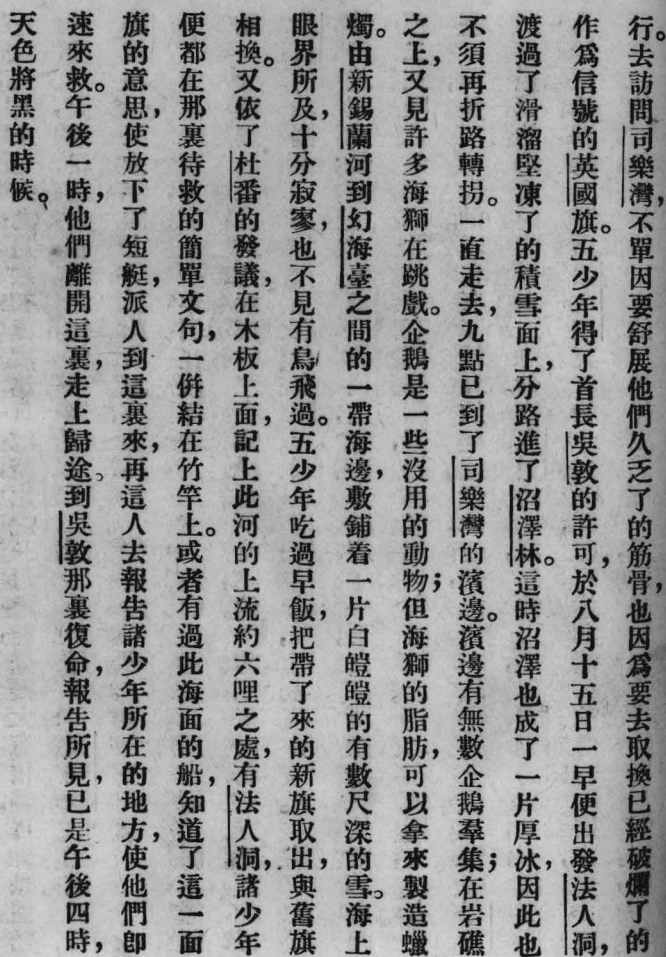 行。去訪問司樂灣，不單因要舒展他們久乏了的筋骨，也因爲要去取換已經破爛了的
作爲信號的英國旗。五少年得了首長吳敦的許可，於八月十五日一早便出發法人洞，
渡過了滑溜堅凍了的積雪面上，分路進了沼澤林。這時沼澤也成了一片厚冰，因此也
不須再折路轉拐。一直走去，九點已到了司樂灣的濱邊。濱邊有無數企鵝羣集；在岩礁
之上，又見許多海獅在跳戲。企鵝是一些沒用的動物；但海獅的脂肪，可以拿來製造蠟
燭。由新錫蘭河到幻海臺之間的一帶海邊，敷鋪着一片白皚皚的有數尺深的雪。海上
眼界所及，十分寂寥，也不見有鳥飛過。五少年吃過早飯，把帶了來的新旗取出，與舊旗
相換。又依了杜番的發議，在木板上面，記上此河的上流約六哩之處，有法人洞，諸少年
便都在那裏待救的簡單文句，一併結在竹竿上。或者有過此海面的船，知道了這一面
旗的意思，使放下了短艇，派人到這裏來，再這人去報告諸少年所在的地方，使他們卽
速來救。午後一時，他們離開這裏，走上歸途。到吳敦那裏復命，報告所見，已是午後四時，
天色將黑的時候。